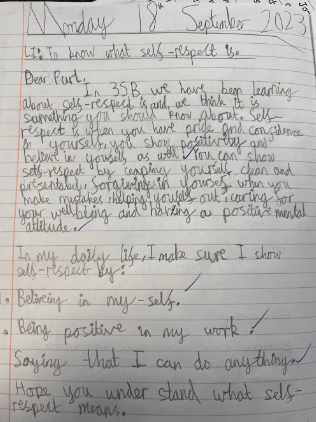 Monday 18th September 2023
LI: To know what self-respect is.
Dear Purl,
In 3SB we have been learning
about self-respect is and, we think it is
something you should know about. Self
respect is when you have pride and confidence
in yourself, you show positivity and
believe in yourself as well. You can show
self-respect by keaping yourself clean and
presentabel, forgiving in yourself when you
make mistakes, helping yourself out, caring for
your wellbeing and having a positive mental
attitude.
In my daily life, I make sure I show
self-respect by:
Believing in my-self.
Being positive in my work.
Saying that I can do anything
Hope you under stand what self-
respect means.